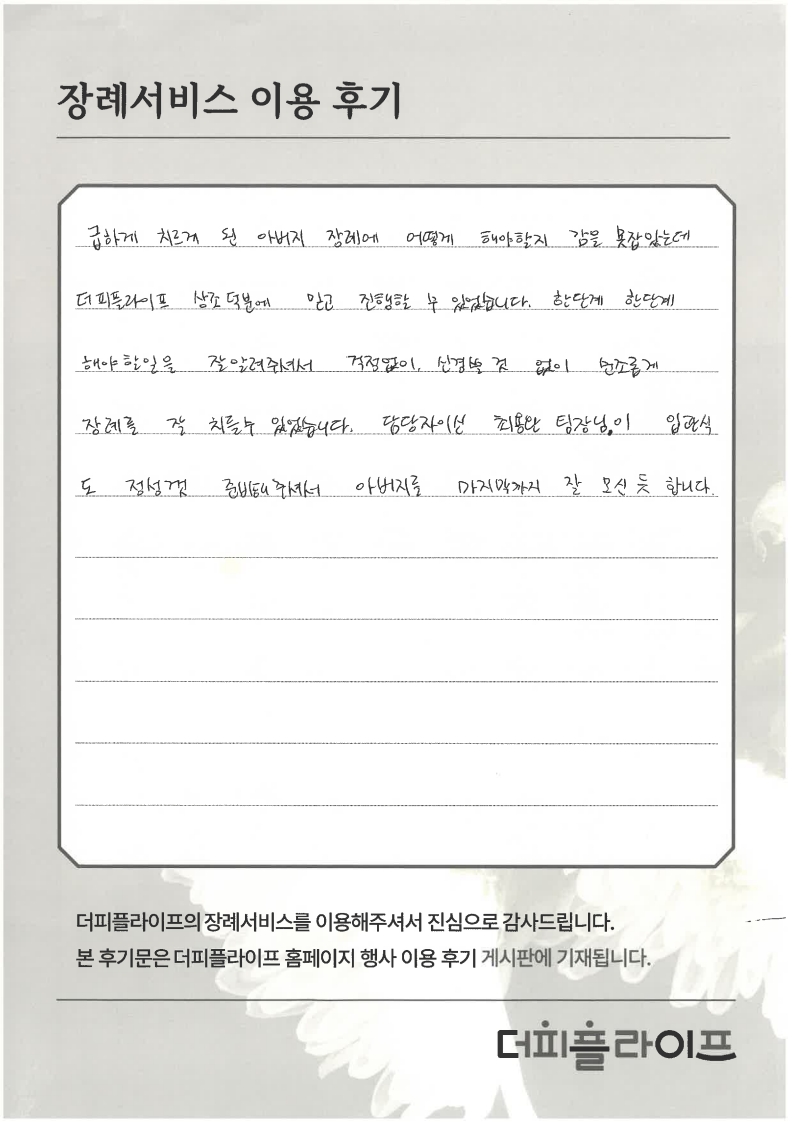 장례서비스 이용 후기
급하게 치르게 된 아버지 장례에 어떻게 해야할지 감을 못잡았는데
더피플라이프 상조 덕분에 믿고 진행할 수 있었습니다. 한단계 한단계
해야 할일을 잘알려주셔서 걱정없이, 신경쓸 것 없이 번조롭게
장례를 잘 치를수 있었습니다. 담당자이신 최용완 팀장님이 입관식
도 정성껏 준비해주셔서 아버지를 마지막까지 잘 모신 듯 합니다.
더피플라이프의 장례서비스를 이용해주셔서 진심으로 감사드립니다.
본 후기문은 더피플라이프 홈페이지 행사 이용 후기 게시판에 기재됩니다.
더피플라이프